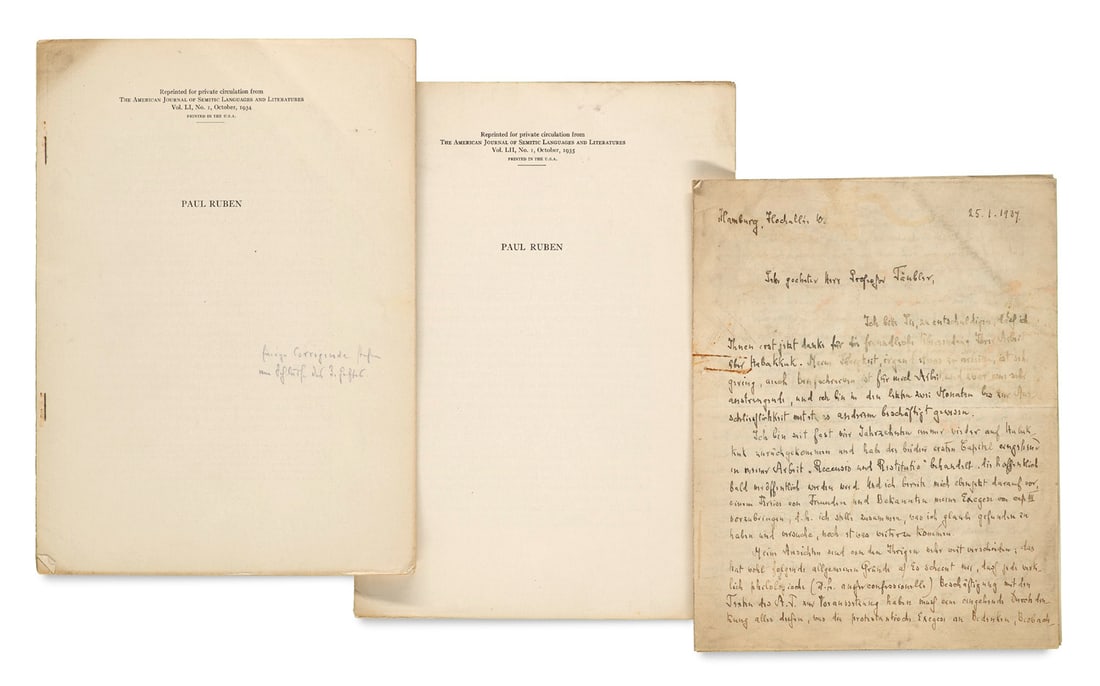 Reprinted for private circulation from
THE AMERICAN JOURNAL OF SEMITIC LANGUAGES AND LITERATURES
Vol. LI, No. 1, October, 1934
PRINTED IN THE U.S.A.
PAUL RUBEN
Einige Corrigenda
am Schluss des
Reprinted for private circulation from
THE AMERICAN JOURNAL OF SEMITIC LANGUAGES AND LITERATURES
Vol. LII, No. 1, October, 1935
PRINTED IN THE U.S.A.
PAUL RUBEN
Hamburg, Hochallee 25.1.1937.
Sehr geehrter Herr Professor Täubler,
Ich bitte Sie, zu entschuldigen, daß ich
Ihnen erst jetzt danke für die freundliche Übersendung Ihrer Arbeit
über Habakkuk. Meine Fähigkeit, irgend etwas zu arbeiten, ist sehr
gering, auch ist für mich Arbeit und zwar eine sehr
anstrengende, und ich bin in den letzten zwei Monaten bis zur Aus-
schließlichkeit mit etwas anderem beschäftigt gewesen.
Ich bin seit fast vier Jahrzehnten immer wieder auf Habak-
kuk zurückgekommen und habe die beiden ersten Capitel eingehend
in meiner Arbeit „Recensio und Restitutio" behandelt, die hoffentlich
bald veröffentlich werden wird. Und ich bereite mich eben jetzt darauf vor,
einem Kreise von Freunden und Bekannten meine Exegese von cap III
vorzubringen, d.h. ich stelle zusammen, was ich glaube gefunden zu
haben und versuche, noch etwas weiter zu kommen.
Meine Ansichten sind von den Ihrigen sehr weit verschieden; das
hat wohl folgende allgemeinen Gründe a) Es scheint mir, daß jede wirk-
lich philologische (d.h. außerconfessionelle) Beschäftigung mit den
Texten des A.T. zur Voraussetzung haben muß eine eingehende Durchden-
kung alles dessen, was die protestantische Exegese an Bedenken, Beobach-